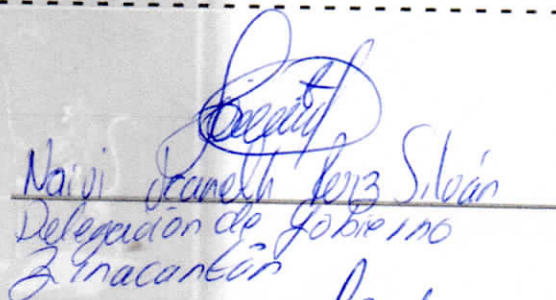 Naivi Jeaneth Perez Silván
Delegación de Gobierno
Zinacantán